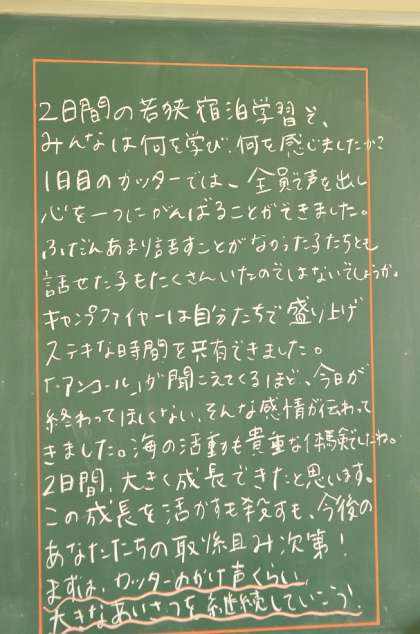 2日間の若狭宿泊学習で、
みんなは何を学び、何を感じましたか?
1日目のカッターでは、全員で声を出し
心を一つにがんばることができました。
ふだんあまり話すことがなかった子たちとも
話せた子もたくさんいたのではないでしょうか。
キャンプファイヤーは自分たちで盛り上げ
ステキな時間を共有できました。
「アンコール」が聞こえてくるほど、今日が
終わってほしくない、そんな感情が伝わって
きました。海の活動も貴重な体験でしたね。
2日間、大きく成長できたと思います。
この成長を活かすも殺すも、今後の
あなたたちの取り組み次第!
まずは、カッターのかけ声くらい
大きなあいさつを継続していこう!